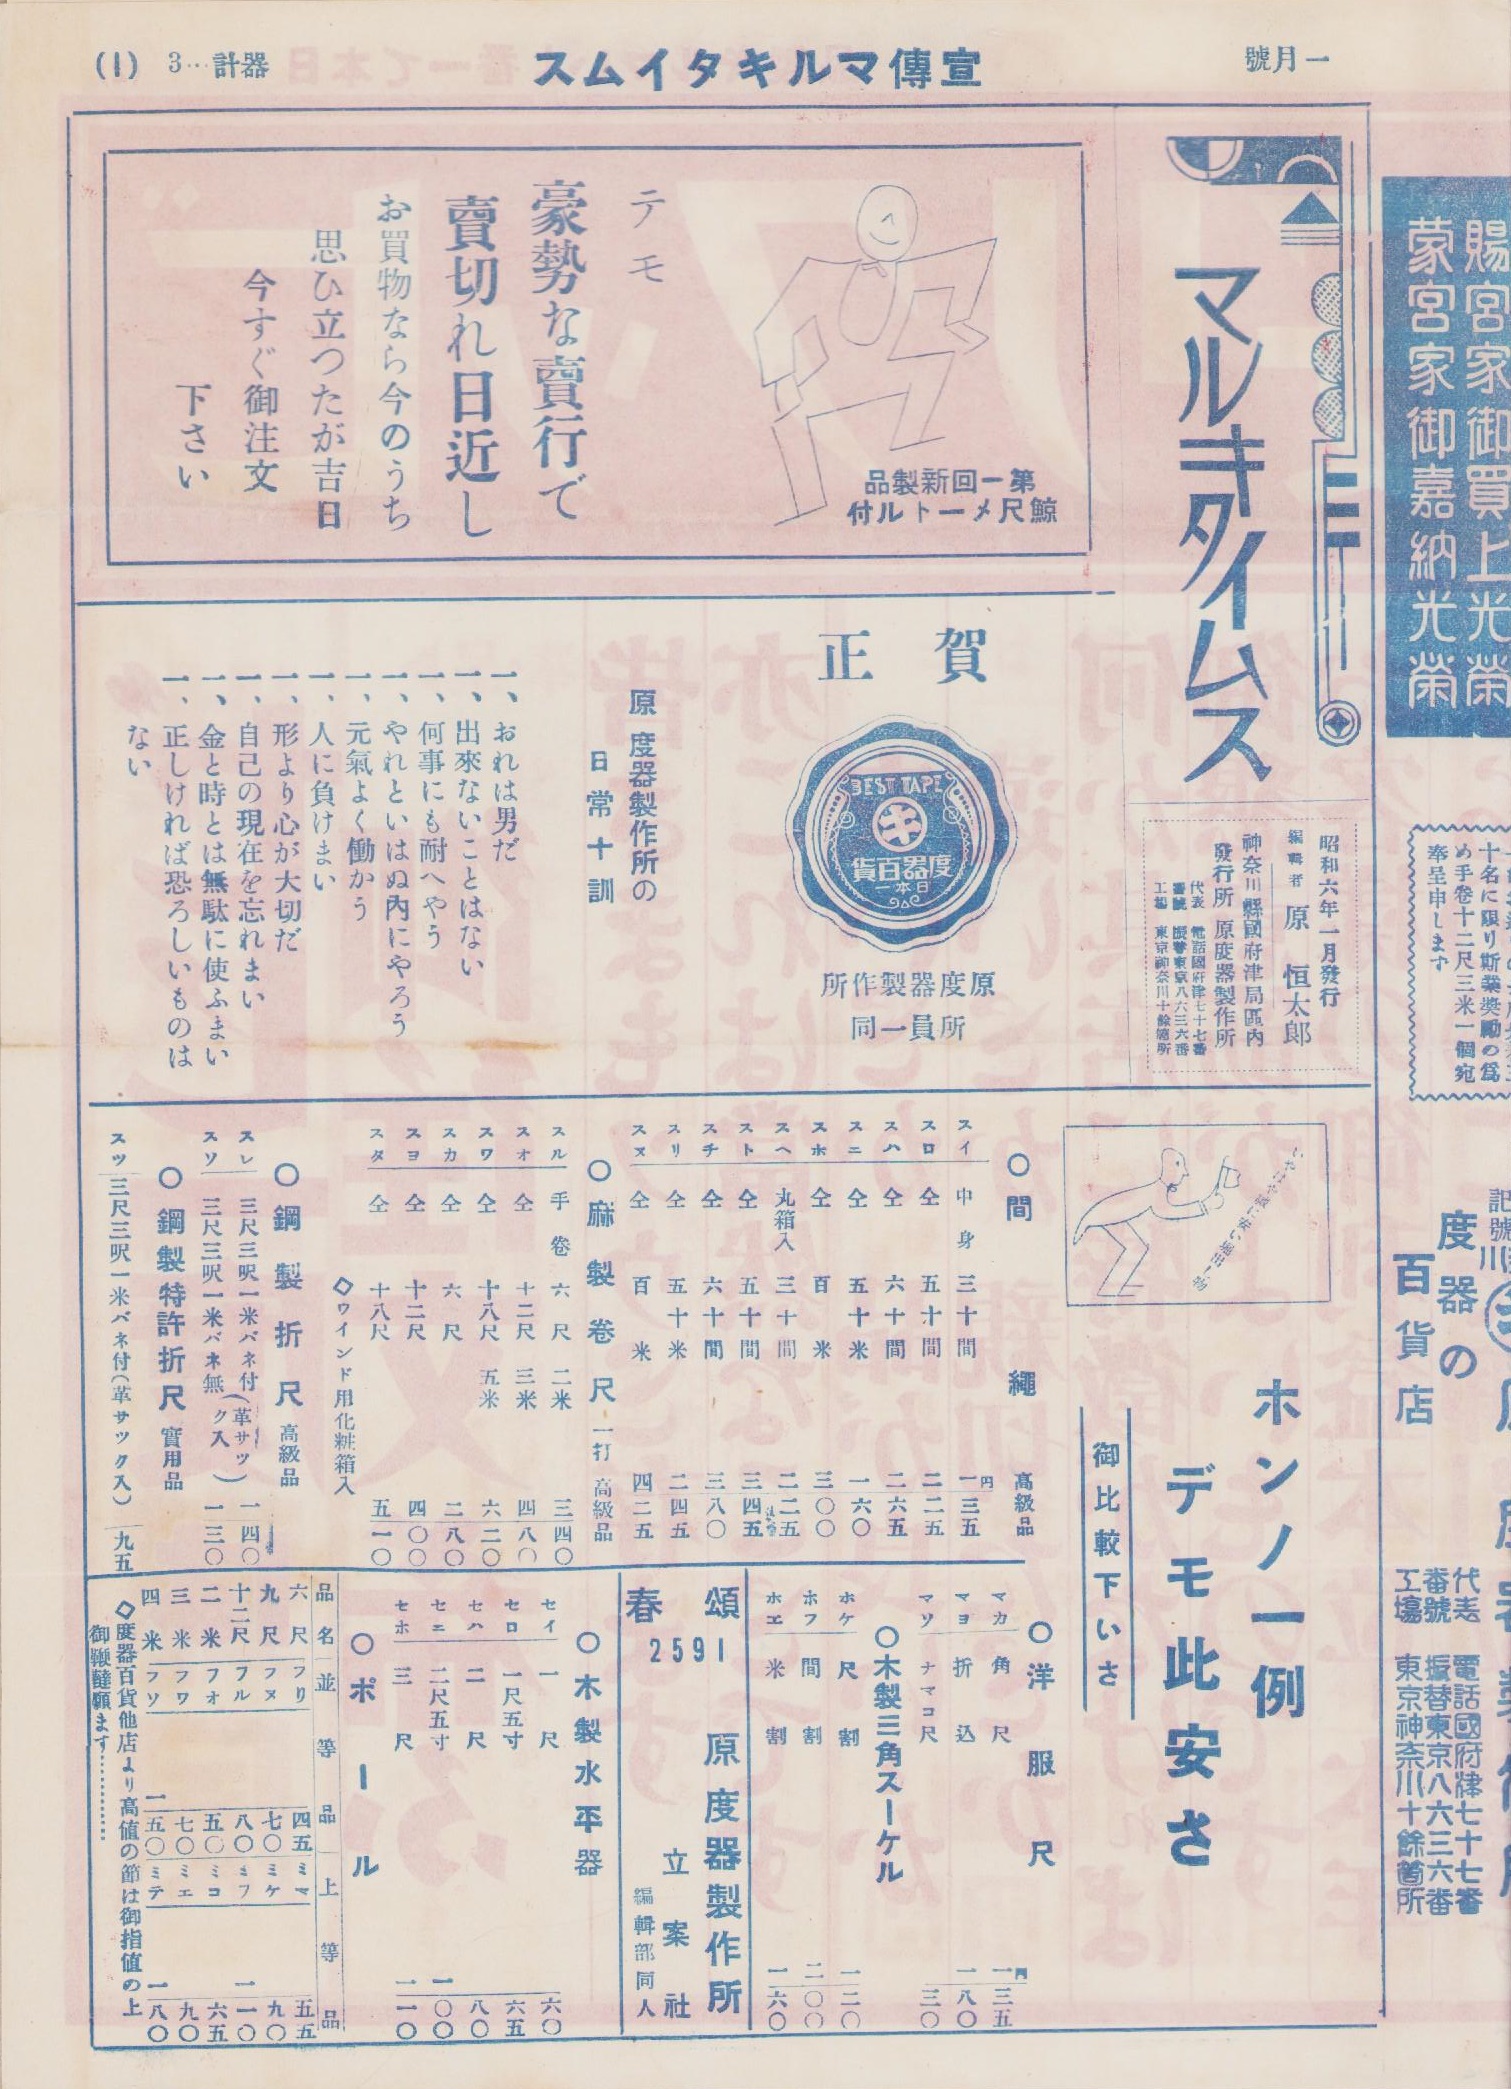 一月號
宣傳マルキタイムス
器計…3
(1)
賜宮家御買上光榮
蒙宮家御嘉納光榮
マルキタイムス
昭和六年一月發行
編輯者 原 恒太郎
神奈川縣國府津局區內
發行所 原度器製作所
代表 電話國府津七十七番
番號 振替東京八六三六番
工場 東京神奈川十餘箇所
第一回新製品
鯨尺メートル付
テモ
豪勢な賣行で
賣切れ日近し
お買物なら今のうち
思ひ立つたが吉日
今すぐ御注文
下さい
賀正
BEST TAPE
キ
度器百貨
日本一
原度器製作所
所員一同
原度器製作所の
日常十訓
一、おれは男だ
一、出來ないことはない
一、何事にも耐へやう
一、やれといはぬ內にやろう
一、元氣よく働かう
一、人に負けまい
一、形より心が大切だ
一、自己の現在を忘れまい
一、金と時とは無駄に使ふまい
一、正しければ恐ろしいものは
ない
十名に限り斯業奬勵の爲
め手卷十二尺三米一個宛
奉呈申します
度器の
百貨店
代表 電話國府津七十七番
番號 振替東京八六三六番
工場 東京神奈川十餘箇所
ホンノ一例
デモ此安さ
御比較下いさ
○間繩 高級品
スイ 中身 三十間 一円三五
スロ 仝 五十間 二二五
スハ 仝 六十間 二六五
スニ 仝 五十米 一六〇
スホ 仝 百米 三〇〇
スヘ 丸箱入 三十間 二二五
スト 仝 五十間 三四五
スチ 仝 六十間 三八〇
スリ 仝 五十米 二四五
スヌ 仝 百米 四二五
○麻製卷尺 一打 高級品
スル 手卷 六尺 二米 三四〇
スオ 仝 十二尺 三米 四八〇
スワ 仝 十八尺 五米 六二〇
スカ 仝 六尺 二八〇
スヨ 仝 十二尺 四〇〇
スタ 仝 十八尺 五一〇
◇ワインド用化粧箱入
○鋼製折尺 高級品
スレ 三尺三呎一米バネ付(革サッ 一四〇
スソ 三尺三呎一米バネ無 ク入) 一三〇
○鋼製特許折尺 實用品
スツ 三尺三呎一米バネ付(革サック入) 九五
○洋服尺
マカ 角尺 一円三五
マヨ 折込 一八〇
マソ ナマコ尺 三〇
○木製三角スーケル
ホケ 尺割 一二〇
ホフ 間割 二〇〇
ホエ 米割 一六〇
頌春
2591
原度器製作所
立案社
編輯部同人
○木製水平器
セイ 一尺 六〇
セロ 一尺五寸 六五
セハ 二尺 八〇
セニ 二尺五寸 一〇〇
セホ 三尺 一一〇
○ポール
品名 並等品 上等品
六尺 フリ 四五 ミマ 五五
九尺 フヌ 七〇 ミケ 九〇
十二尺 フル 八〇 ミフ 一一〇
二米 フオ 五〇 ミコ 六五
三米 フワ 七〇 ミエ 九〇
四米 フソ 一五〇 ミテ 一八〇
◇度器百貨他店より高値の節は御指値の上
御鞭韃願ます…………